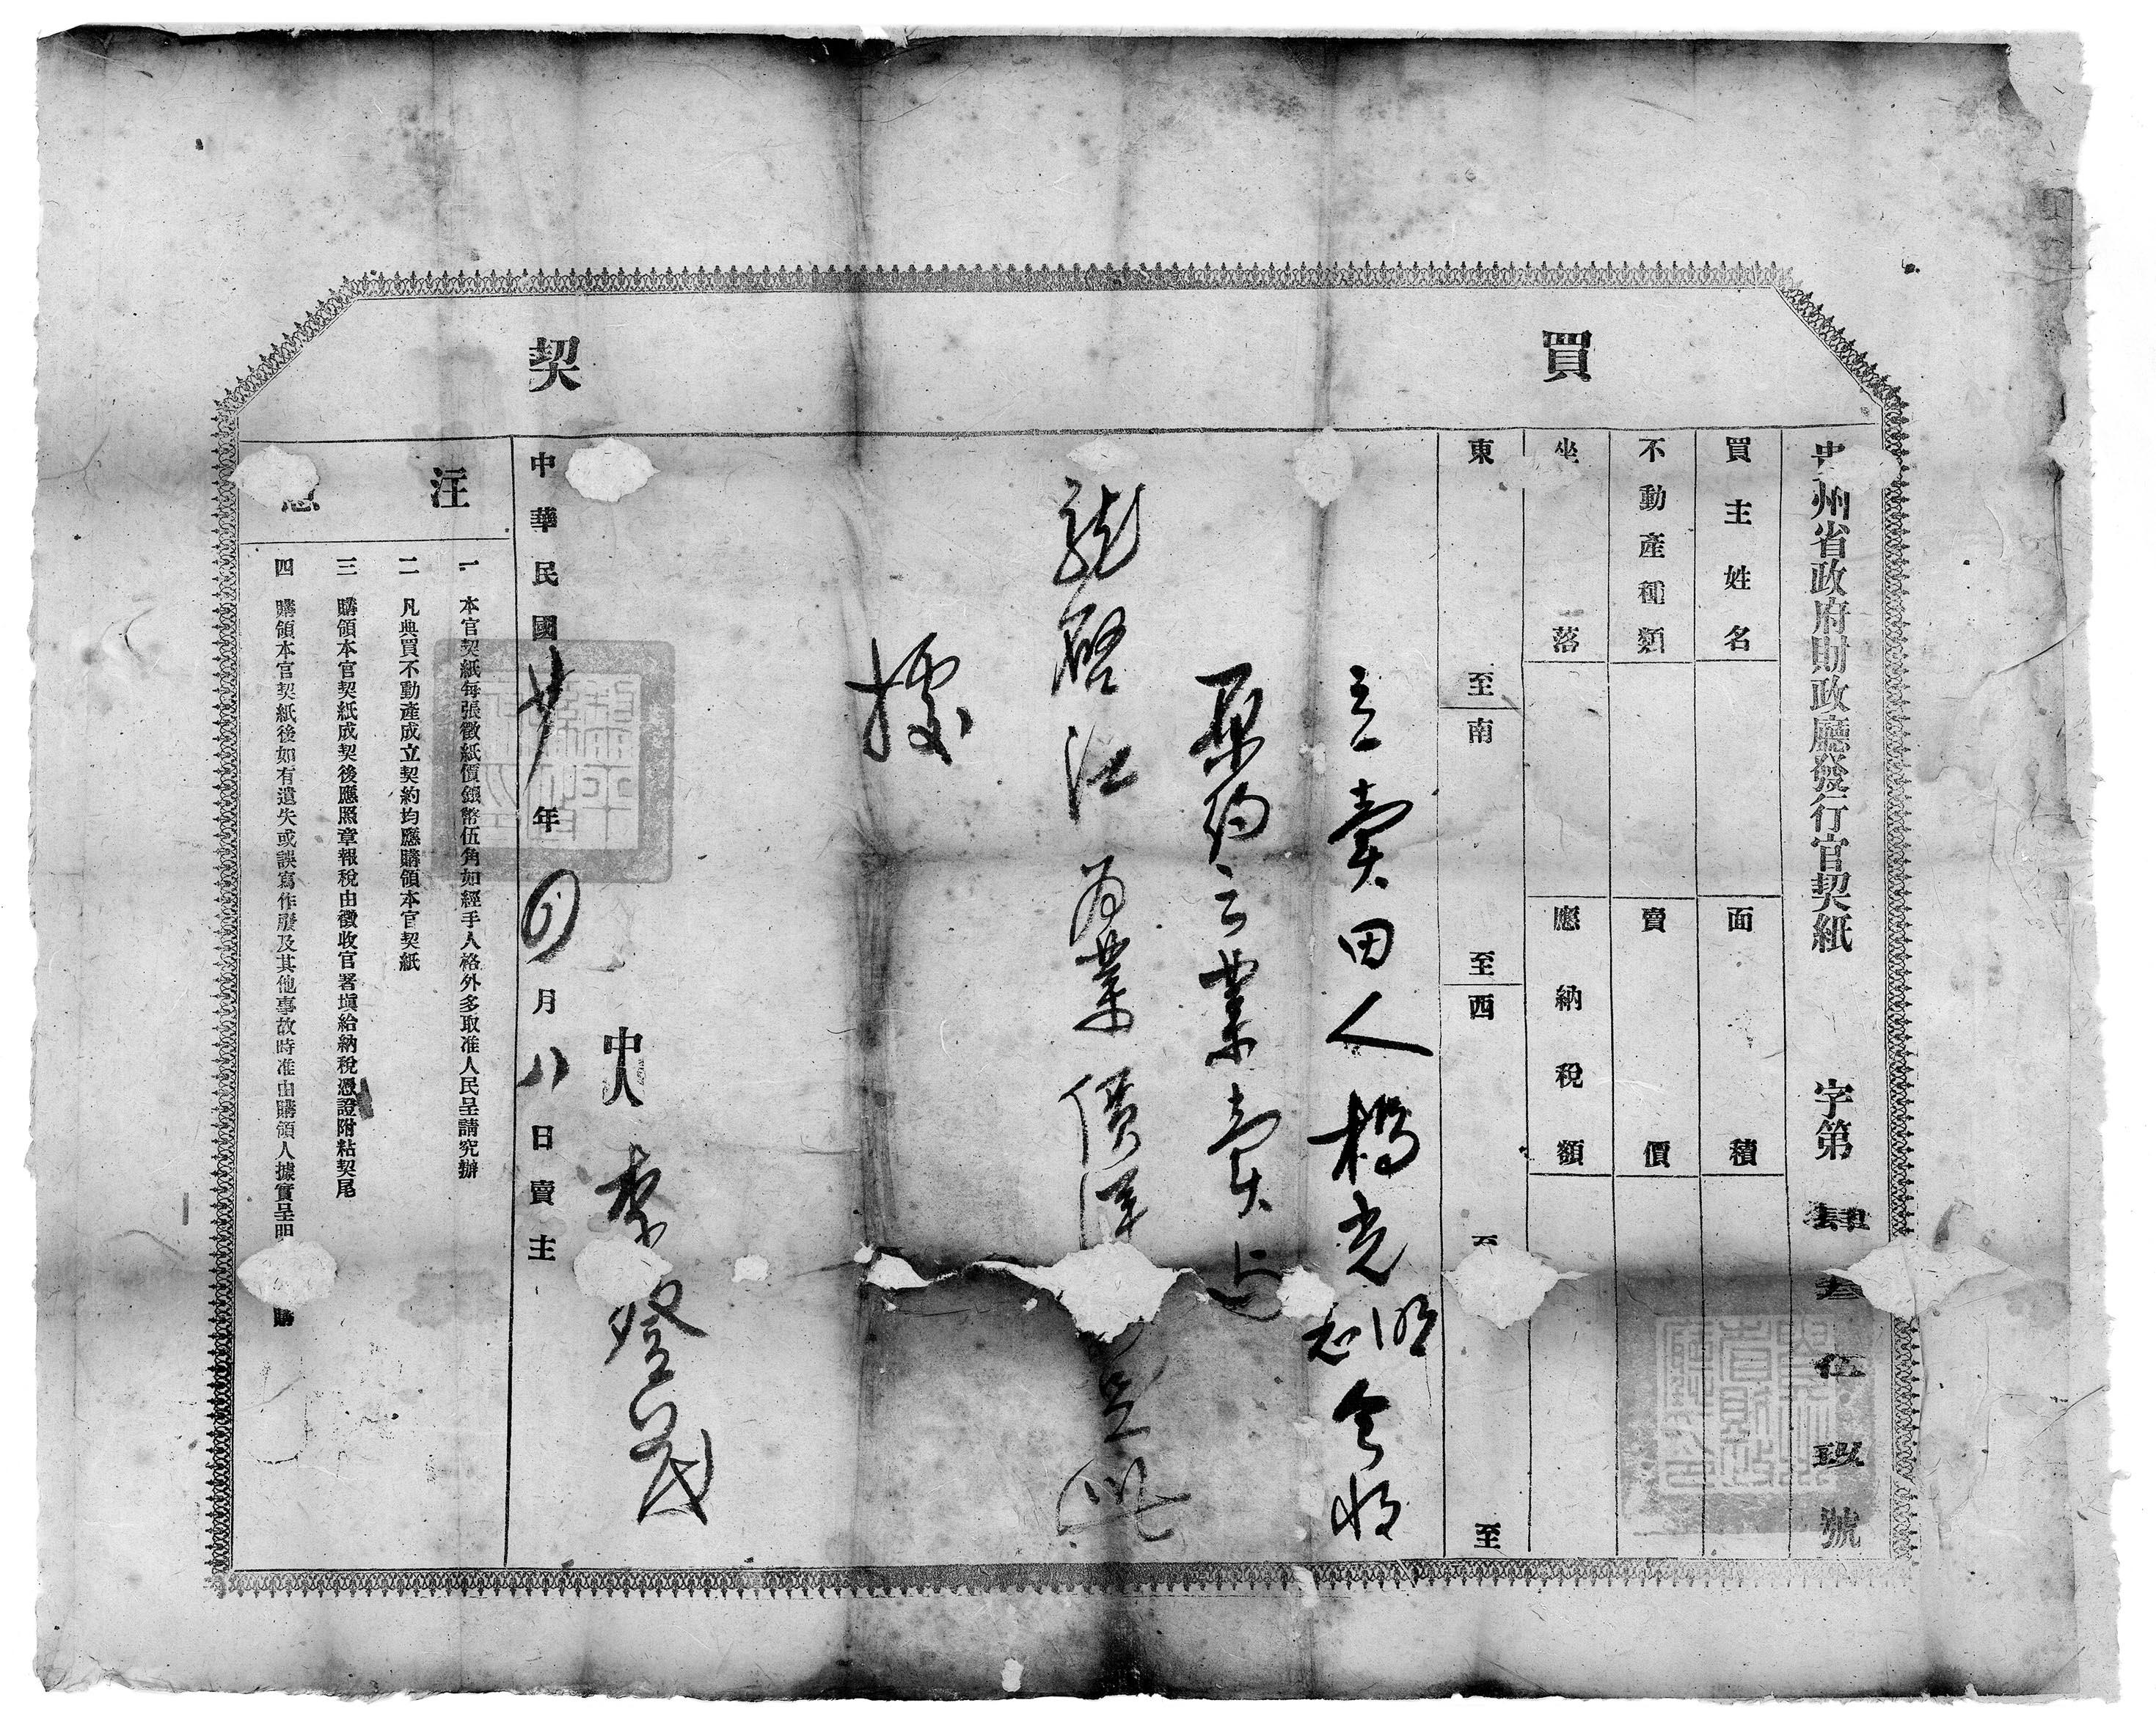 買契
貴州省政府財政廳發行官契紙 字第肆叁伍玖號
買主姓名 面積
不動產種類 賣價
坐落 應納稅額
東至 南至 西至 至
立賣田人楊光明 志 今將
原約之業賣與
龍啓江 為業 價洋 立此
據
中人 李登
中華民國廿年 四 月 八 日賣主
注意
一 本官契紙每張徵紙價銀幣伍角如經手人格外多取准人民呈請究辦
二 凡典買不動產成立契約均應購領本官契紙
三 購領本官契紙成契後應照章報稅由徵收官署塡給納稅憑證附粘契尾
四 購領本官契紙後如有遺失或誤寫作廢及其他事故時准由購領人據實呈明 購